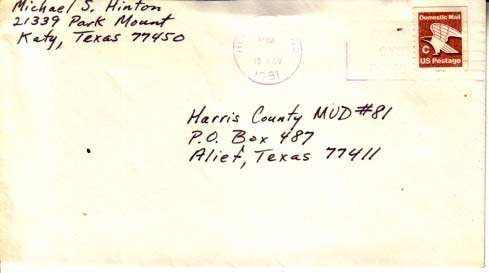 Michael S. Hinton
21339 Park Mount
Katy, Texas 77450
PM
13 NOV
1981
Domestic Mail
C
US Postage
Harris County MUD #81
P.O. Box 487
Alief, Texas 77411